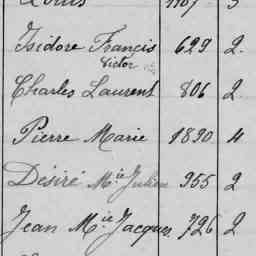 Louis 1107 3
Isidore Francis 629 2.
Victor
Charles Laurent 806 2
Pierre Marie 1890 4
Désiré Mie Julien 955 2
Jean Mie Jacques 726 2